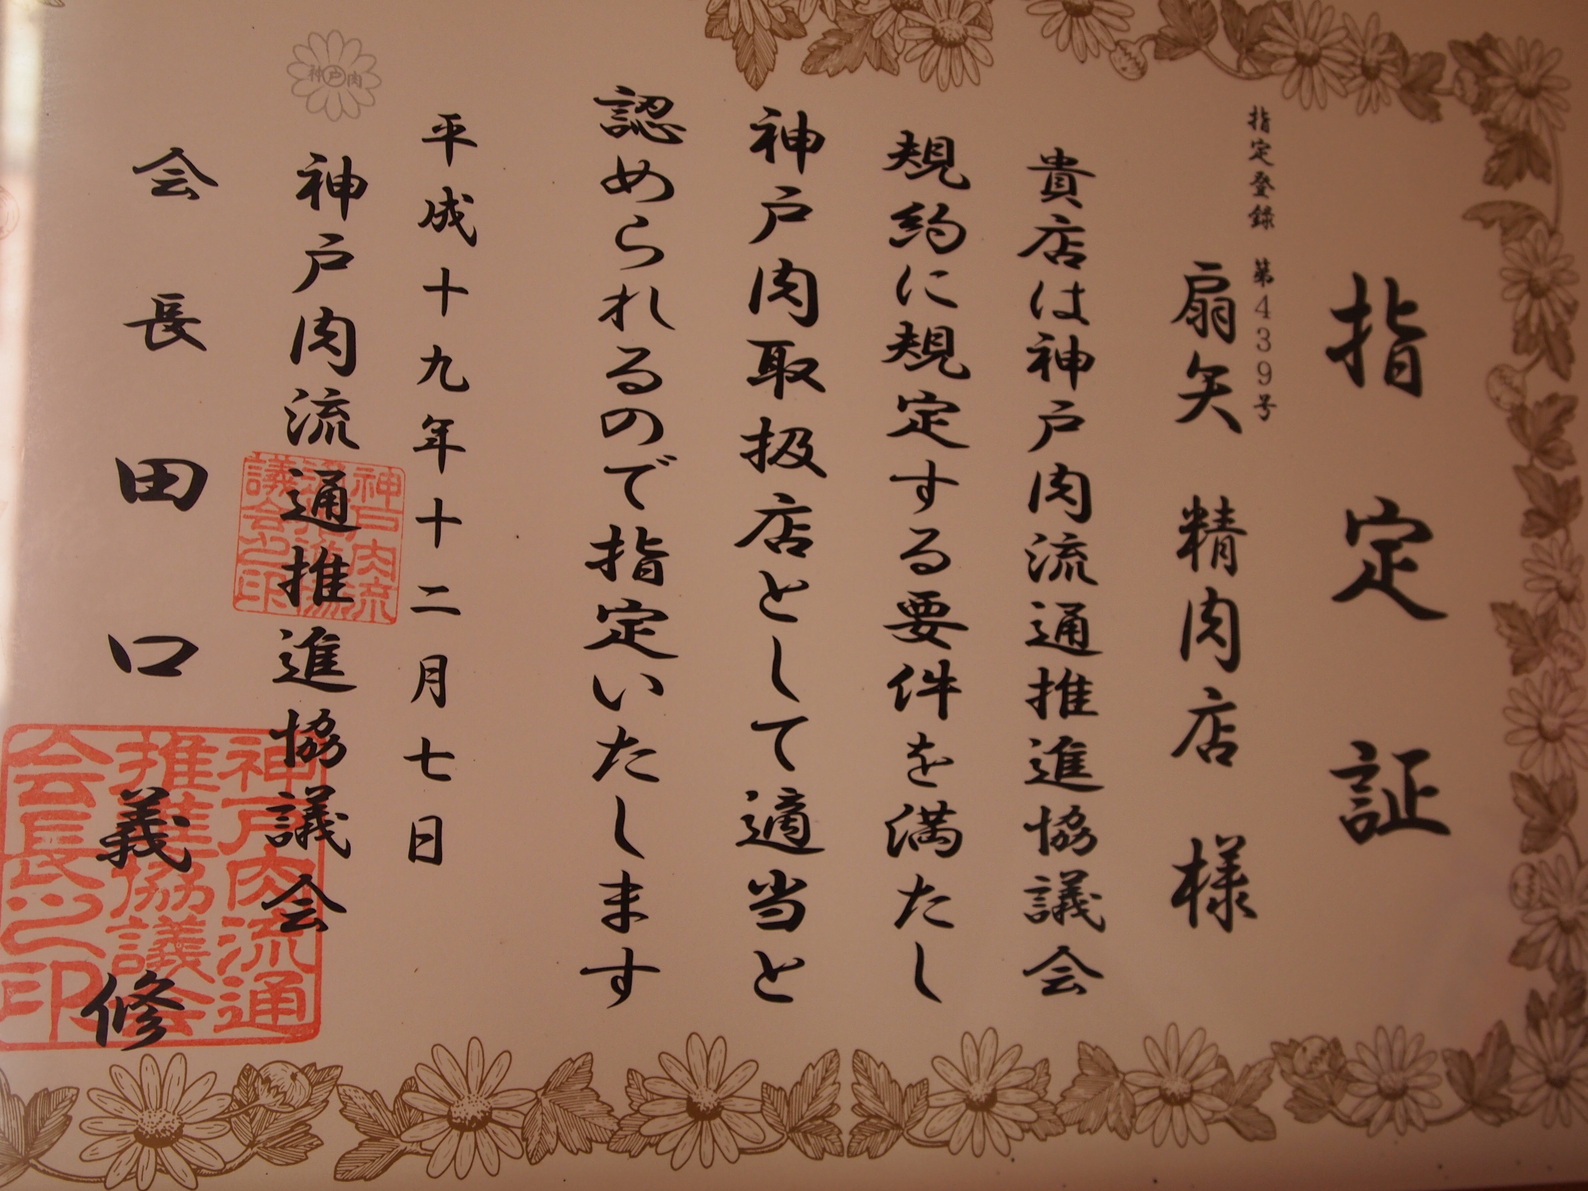 指定証
指定登録 第439号
扇矢 精肉店 様
貴店は神戸肉流通推進協議会
規約に規定する要件を満たし
神戸肉取扱店として適当と
認められるので指定いたします
平成十九年十二月七日
神戸肉
神戸肉流通推進協議会
神戸肉流通推進協議会之印
会長 田口 義修
神戸肉流通推進協議会会長之印